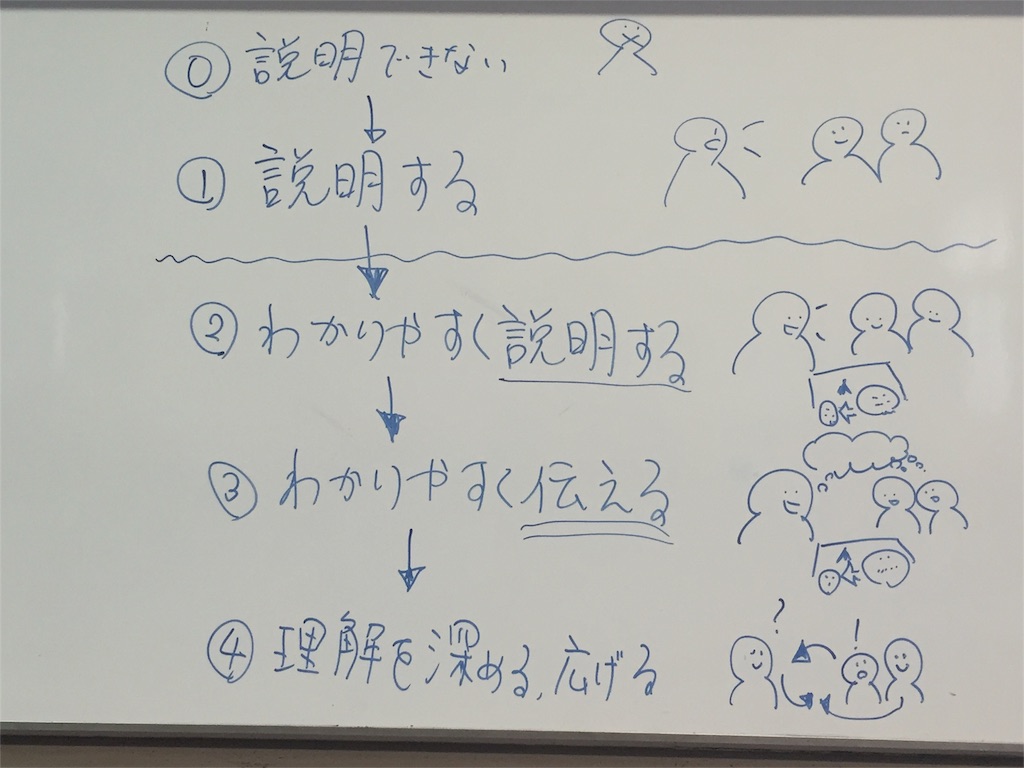 ⓪ 説明できない
① 説明する
② わかりやすく説明する
③ わかりやすく伝える
④ 理解を深める、広げる
?
!